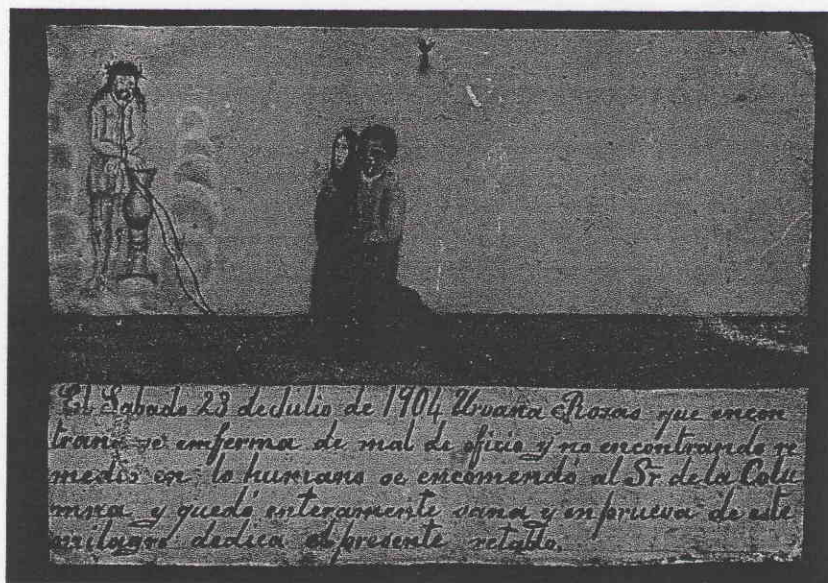 El Sabado 23 deJulio de 1904 Urvana Rozas que encon
trand se emferma de mal de oficio y no encontrando re
medio en lo humano se encomendó al Sr. de la Colu
mna y quedó enteramente sana y en prueva de este
milagro dedica el presente retablo.